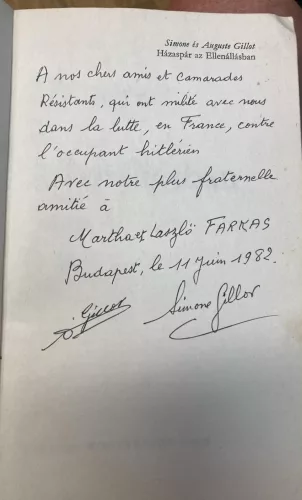 Simone és Auguste Gillot
Házaspár az Ellenállásban
A nos chers amis et camarades
Résistants, qui ont milité avec nous
dans la lutte, en France, contre
l'occupant hitlérien
Avec notre plus fraternelle
amitié à
Martha et Laszlö FARKAS
Budapest, le 11 Juin 1982.
Gillot
Simone Gillot